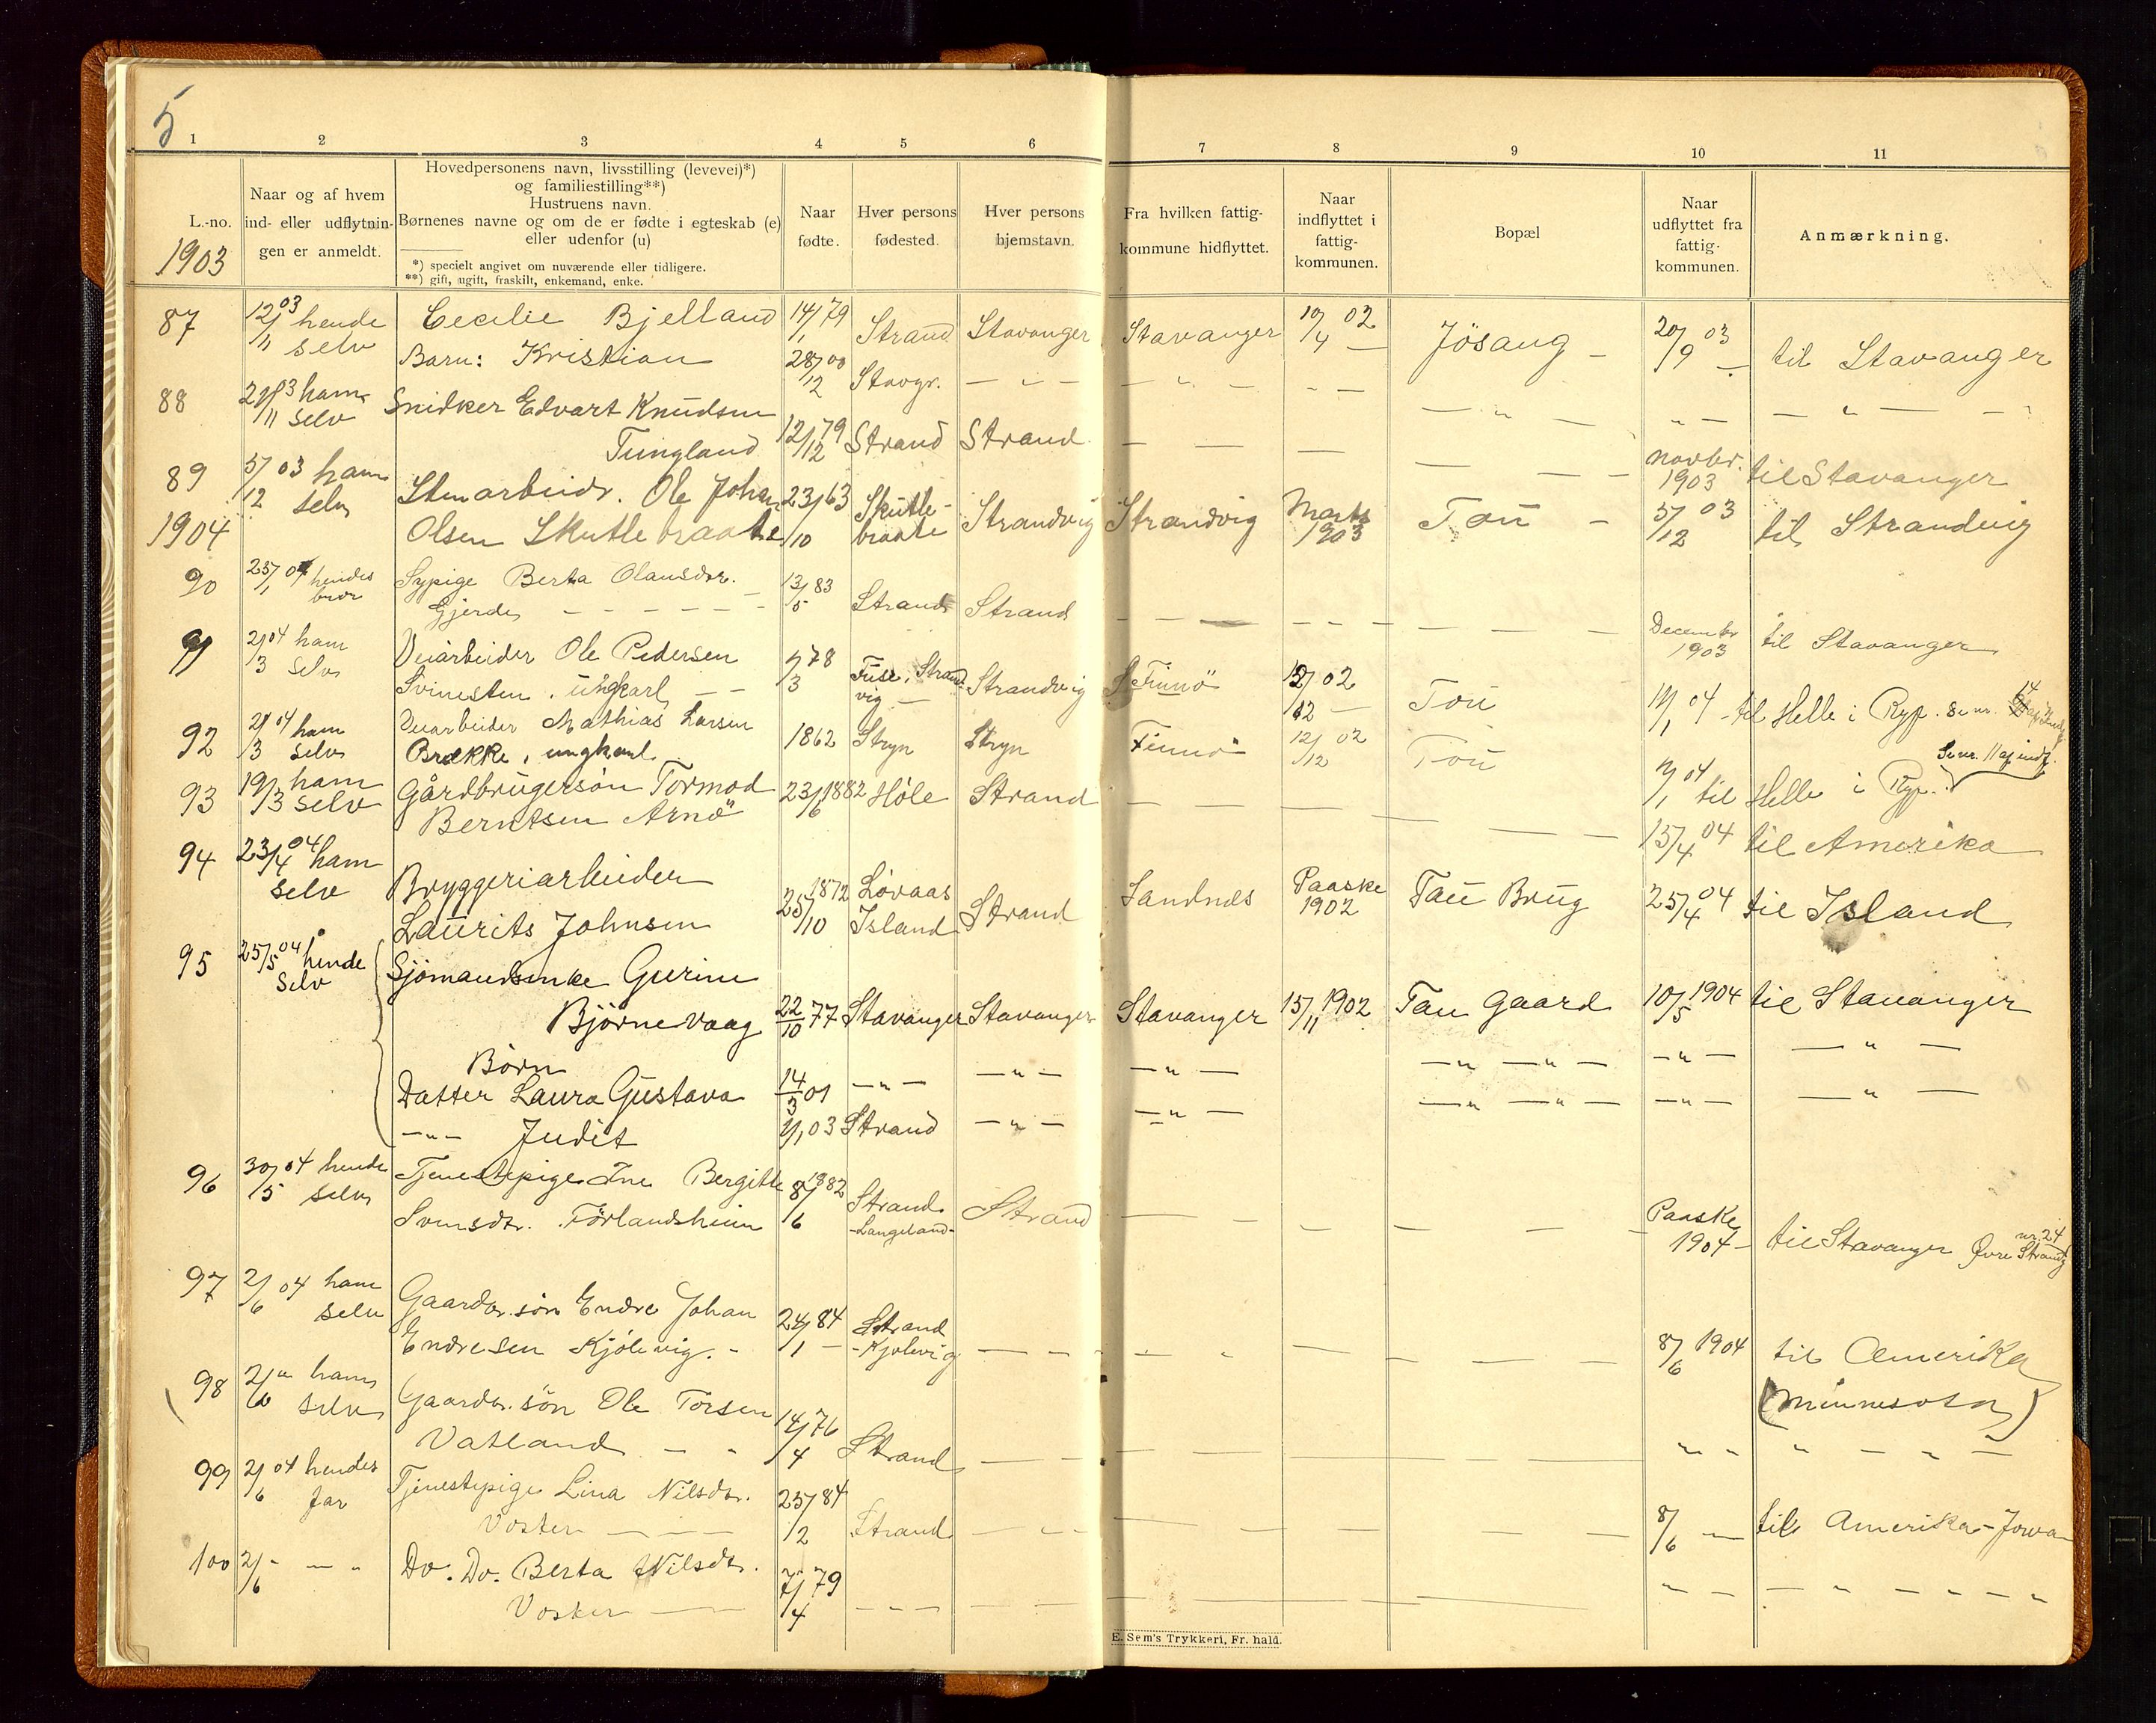 5
1 2 3 4 5 6 7 8 9 10 11
L.-no.
1903
Naar og af hvem
ind- eller udflytnin-
gen er anmeldt.
Hovedpersonens navn, livsstilling (levevei)*)
og familiestilling**)
Hustruens navn.
Børnenes navne og om de er fødte i egteskab (e)
eller udenfor (u)
*) specielt angivet om nuværende eller tidligere.
**) gift, ugift, fraskilt, enkemand, enke.
Naar
fødte.
Hver persons
fødested.
Hver persons
hjemstavn.
Fra hvilken fattig-
kommune hidflyttet.
Naar
indflyttet i
fattig-
kommunen.
Bopæl
Naar
udflyttet fra
fattig-
kommunen.
Anmærkning.
87 12/11 03 hende Cecilie Bjelland 14/1 79 Strand Stavanger Stavanger 10/4 02 Jösang – 20/9 03 til Stavanger
selv Barn: Kristian 28/12 00 Stavgr. – " – – " – – – – " – " – – " – –
88 21/11 03 ham Snidker Edvart Knudsen
selv Tungland 12/12 79 Strand Strand – – – – – – novbr. 1903 til Stavanger
89 5/12 03 ham Stenarbeidr. Ole Johan 23/10 63 Skutle- Strandvig Strandvig Marts 1903 Tou – 5/12 03 til Strandvig
selv Olsen Skutlebraate braate
1904
90 25/1 04 hendes Sypige Berta Olausdtr. 13/5 83
bror Gjerde – – – – – – Strand Strand – – – – – – – – Decembr 1903 til Stavanger
91 2/3 04 ham Veiarbeider Ole Pedersen 1/3 78 Fuse, Strand-
selv Svinesten, ungkarl – – vig – Strandvig Finnö 12/12 02 – Tou 11/1 04 – til Helle i Ryf. se nr. 14
92 2/3 04 ham Veiarbeider Mathias Larsen
selv Brække, ungkarl 1862 Stryn Stryn Finnö 12/12 02 Tou 11/1 04 til Helle i Ryf. Se nr. 11 af indf.
93 19/3 ham Gårdbrugersön Tormod 23/6 1882 Höle Strand – – – – – – 15/4 04 til Amerika
selv Berntsen Arnö
94 23/4 04 ham Bryggeriarbeider
selv Laurits Johnsen 25/10 1872 Lövaas Island Strand Sandnes Paaske 1902 Tau Brug 25/4 04 til Island
95 25/5 04 hende Sjömandsenke Gurine
selv Björnevaag 22/10 77 Stavanger Stavanger Stavanger 15/11 1902 Tau Gaard 10/5 1904 til Stavanger
Börn
Datter Laura Gustava 14/3 01 – " – – " – – " – – " – " – – " – – " –
– " – Judit 1/1 03 Strand – " – – " – – " – " – – " – – " –
96 30/5 04 hende Tjenestepige Ine Bergitte 8/6 1882 Strand
selv Svensdtr. Förlandsheim -Langeland- Strand – – – – – – Paaske 1904 – til Stavanger Øvre Strandg nr. 24
97 2/6 04 ham Gaardbr. sön Endre Johan 24/1 84 Strand
selv Endresen Kjölevig. – -Kjølevig – – – – – – – – 8/6 1904 til Amerika
(Minnesota)
98 2/6 " ham Gaardbr. sön Ole Torsen 14/4 76
selv Vatland – – Strand – – – – – – " " " – – –
99 2/6 04 hendes Tjenestepige Lina Nilsdtr. 25/2 84
far Voster – – – Strand – – – – – – – 8/6 – til Amerika – Jowa
100 2/6 – – " Do. Do. Berta Nilsdtr. 7/4 79
Voster – – – – – – – – – – " – – " – " – –
E. Sem's Trykkeri, Fr. hald.